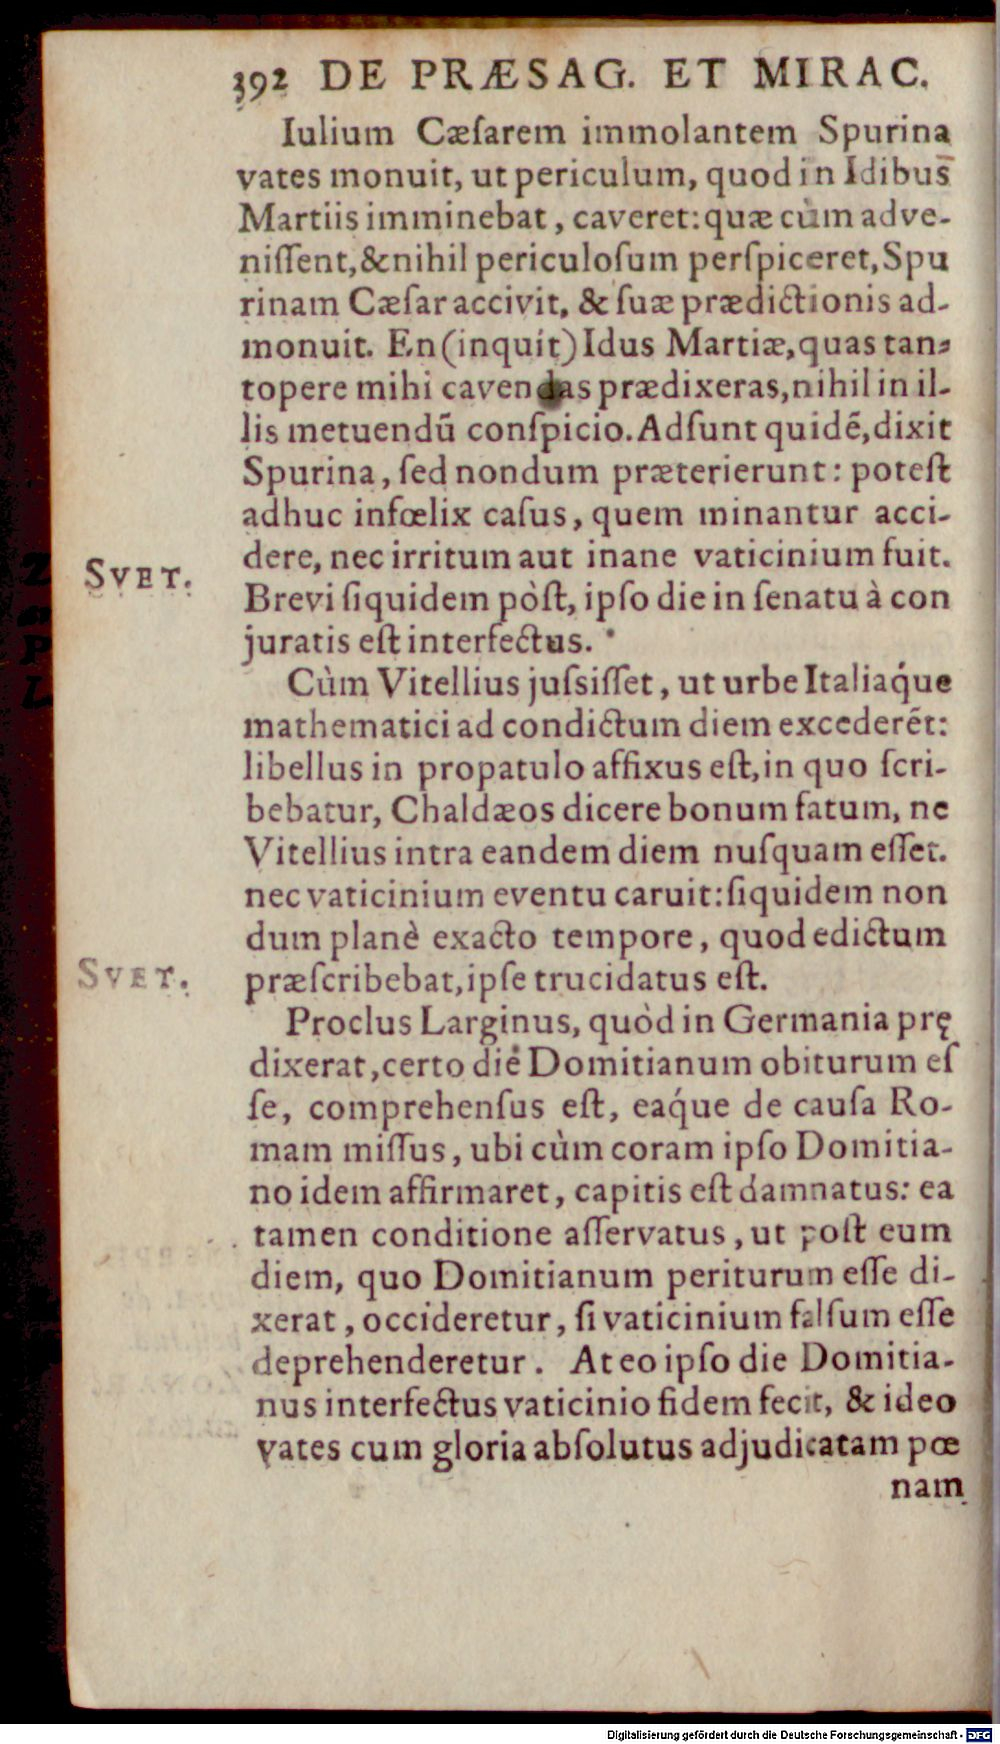 392 DE PRÆSAG. ET MIRAC.
Iulium Cæſarem immolantem Spurina
vates monuit, ut periculum, quod in Idibus
Martiis imminebat, caveret: quæ cùm adve-
niſſent, & nihil periculoſum perſpiceret, Spu
rinam Cæſar accivit, & ſuæ prædictionis ad-
monuit. En (inquit) Idus Martiæ, quas tan-
topere mihi cavendas prædixeras, nihil in il-
lis metuendū conſpicio. Adſunt quidē, dixit
Spurina, ſed nondum præterierunt: poteſt
adhuc infœlix caſus, quem minantur acci-
dere, nec irritum aut inane vaticinium fuit.
SVET.
Brevi ſiquidem pòſt, ipſo die in ſenatu à con
juratis eſt interfectus.
Cùm Vitellius juſsiſſet, ut urbe Italiaq́ue
mathematici ad condictum diem excederēt:
libellus in propatulo affixus eſt, in quo ſcri-
bebatur, Chaldæos dicere bonum fatum, ne
Vitellius intra eandem diem nuſquam eſſet.
nec vaticinium eventu caruit: ſiquidem non
dum planè exacto tempore, quod edictum
SVET.
præſcribebat, ipſe trucidatus eſt.
Proclus Larginus, quòd in Germania prę
dixerat, certo die Domitianum obiturum eſ
ſe, comprehenſus eſt, eaq́ue de cauſa Ro-
mam miſſus, ubi cùm coram ipſo Domitia-
no idem affirmaret, capitis eſt damnatus: ea
tamen conditione aſſervatus, ut poſt eum
diem, quo Domitianum periturum eſſe di-
xerat, occideretur, ſi vaticinium falſum eſſe
deprehenderetur. At eo ipſo die Domitia-
nus interfectus vaticinio fidem fecit, & ideo
vates cum gloria abſolutus adjudicatam pœ
nam
Digitalisierung gefördert durch die Deutsche Forschungsgemeinschaft - DFG